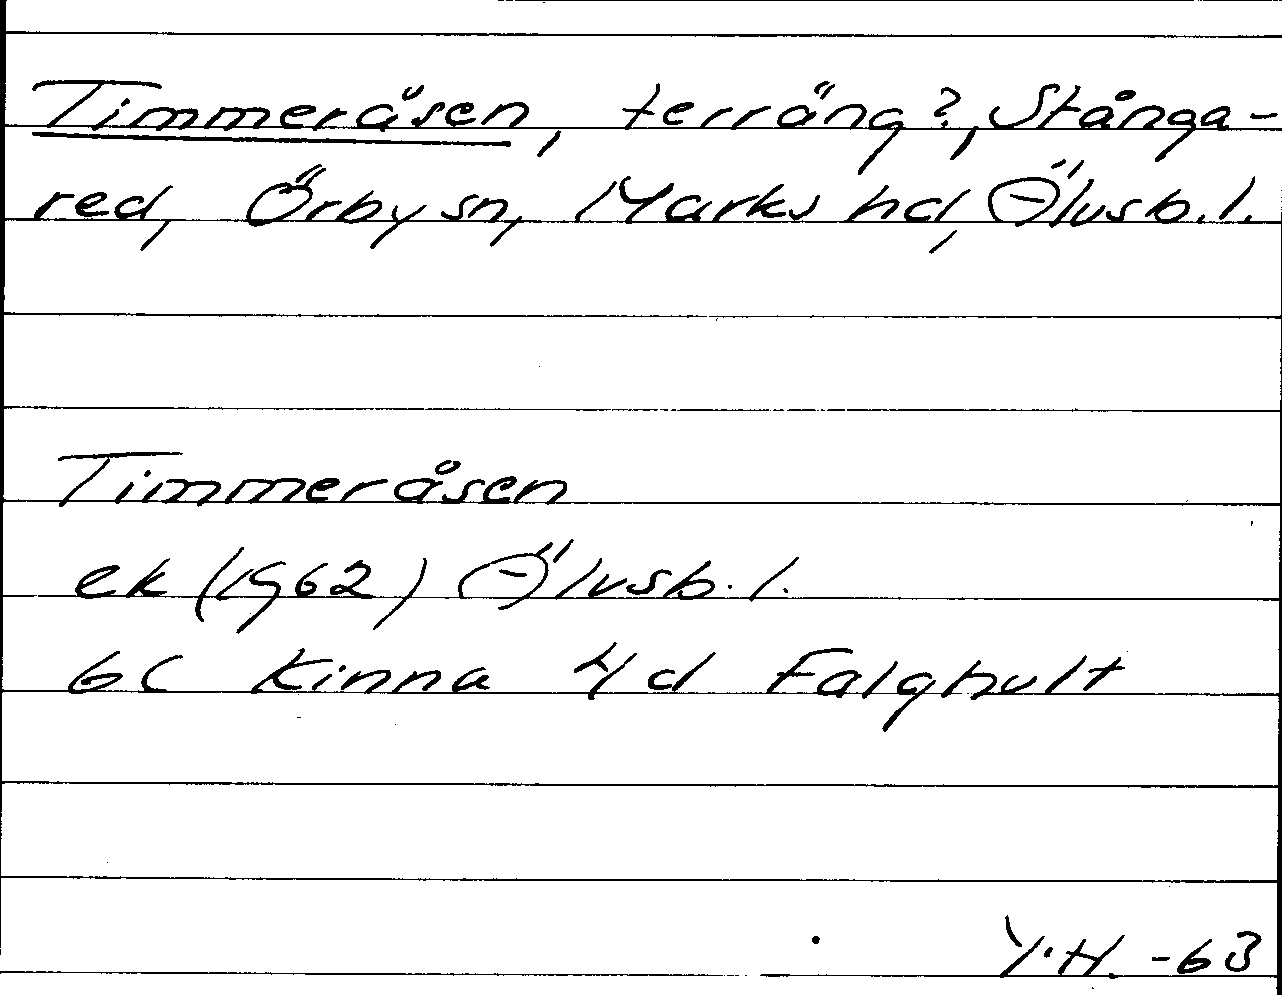 Timmeråsen, terräng?, Stånga-
red, Örby sn, Marks hd, Älvsb. l.
Timmeråsen
ek (1962) Älvsb. l.
6C Kinna 4d Falghult
Y.H. -63